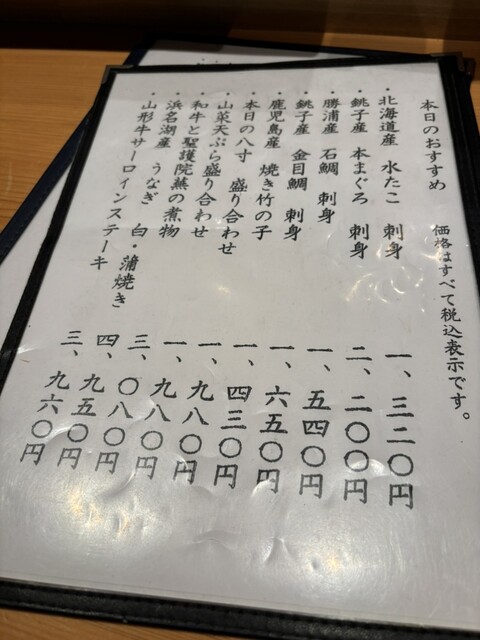 本日のおすすめ 価格はすべて税込表示です。
・北海道産 水たこ 刺身 一、三二〇円
・銚子産 本まぐろ 刺身 二、二〇〇円
・勝浦産 石鯛 刺身 一、五四〇円
・銚子産 金目鯛 刺身 一、六五〇円
・鹿児島産 焼き竹の子 一、四三〇円
・本日の八寸 盛り合わせ 一、九八〇円
・山菜天ぷら盛り合わせ 一、九八〇円
・和牛と聖護院蕪の煮物 三、〇八〇円
・浜名湖産 うなぎ 白・蒲焼き 四、九五〇円
・山形牛サーロインステーキ 三、九六〇円